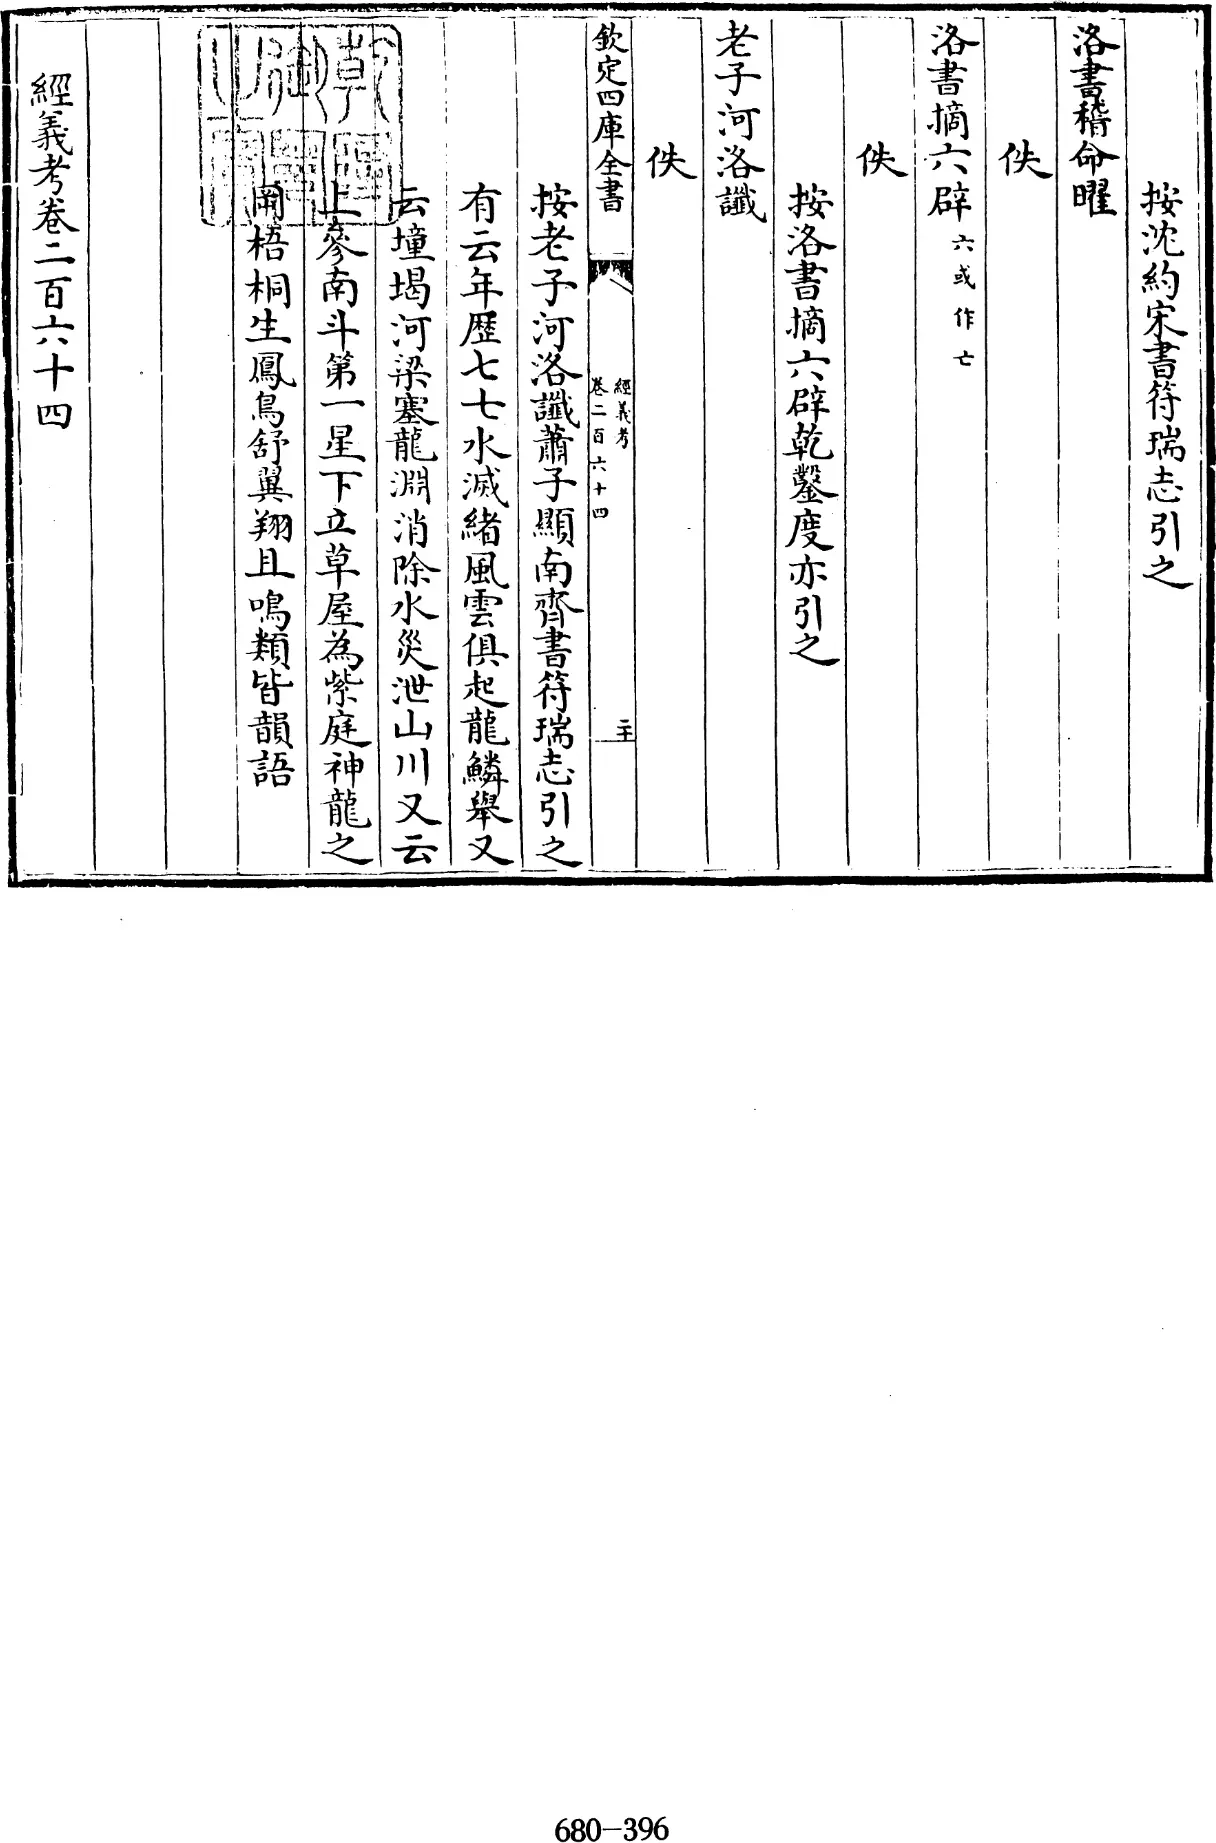 按沈約宋書符瑞志引之
洛書稽命曜
佚
洛書摘六辟六或作亡
佚
按洛書摘六辟乾鑿度亦引之
老子河洛讖
佚
欽定四庫全書
經義考
卷二百六十四
二十
按老子河洛讖蕭子顯南齊書符瑞志引之
有云年歷七七水滅緒風雲俱起龍鱗舉又
云堙堨河梁塞龍淵消除水災泄山川又云
上參南斗第一星下立草屋為紫庭神龍之
岡梧桐生鳳鳥舒翼翔且鳴類皆韻語
經義考卷二百六十四
680-396